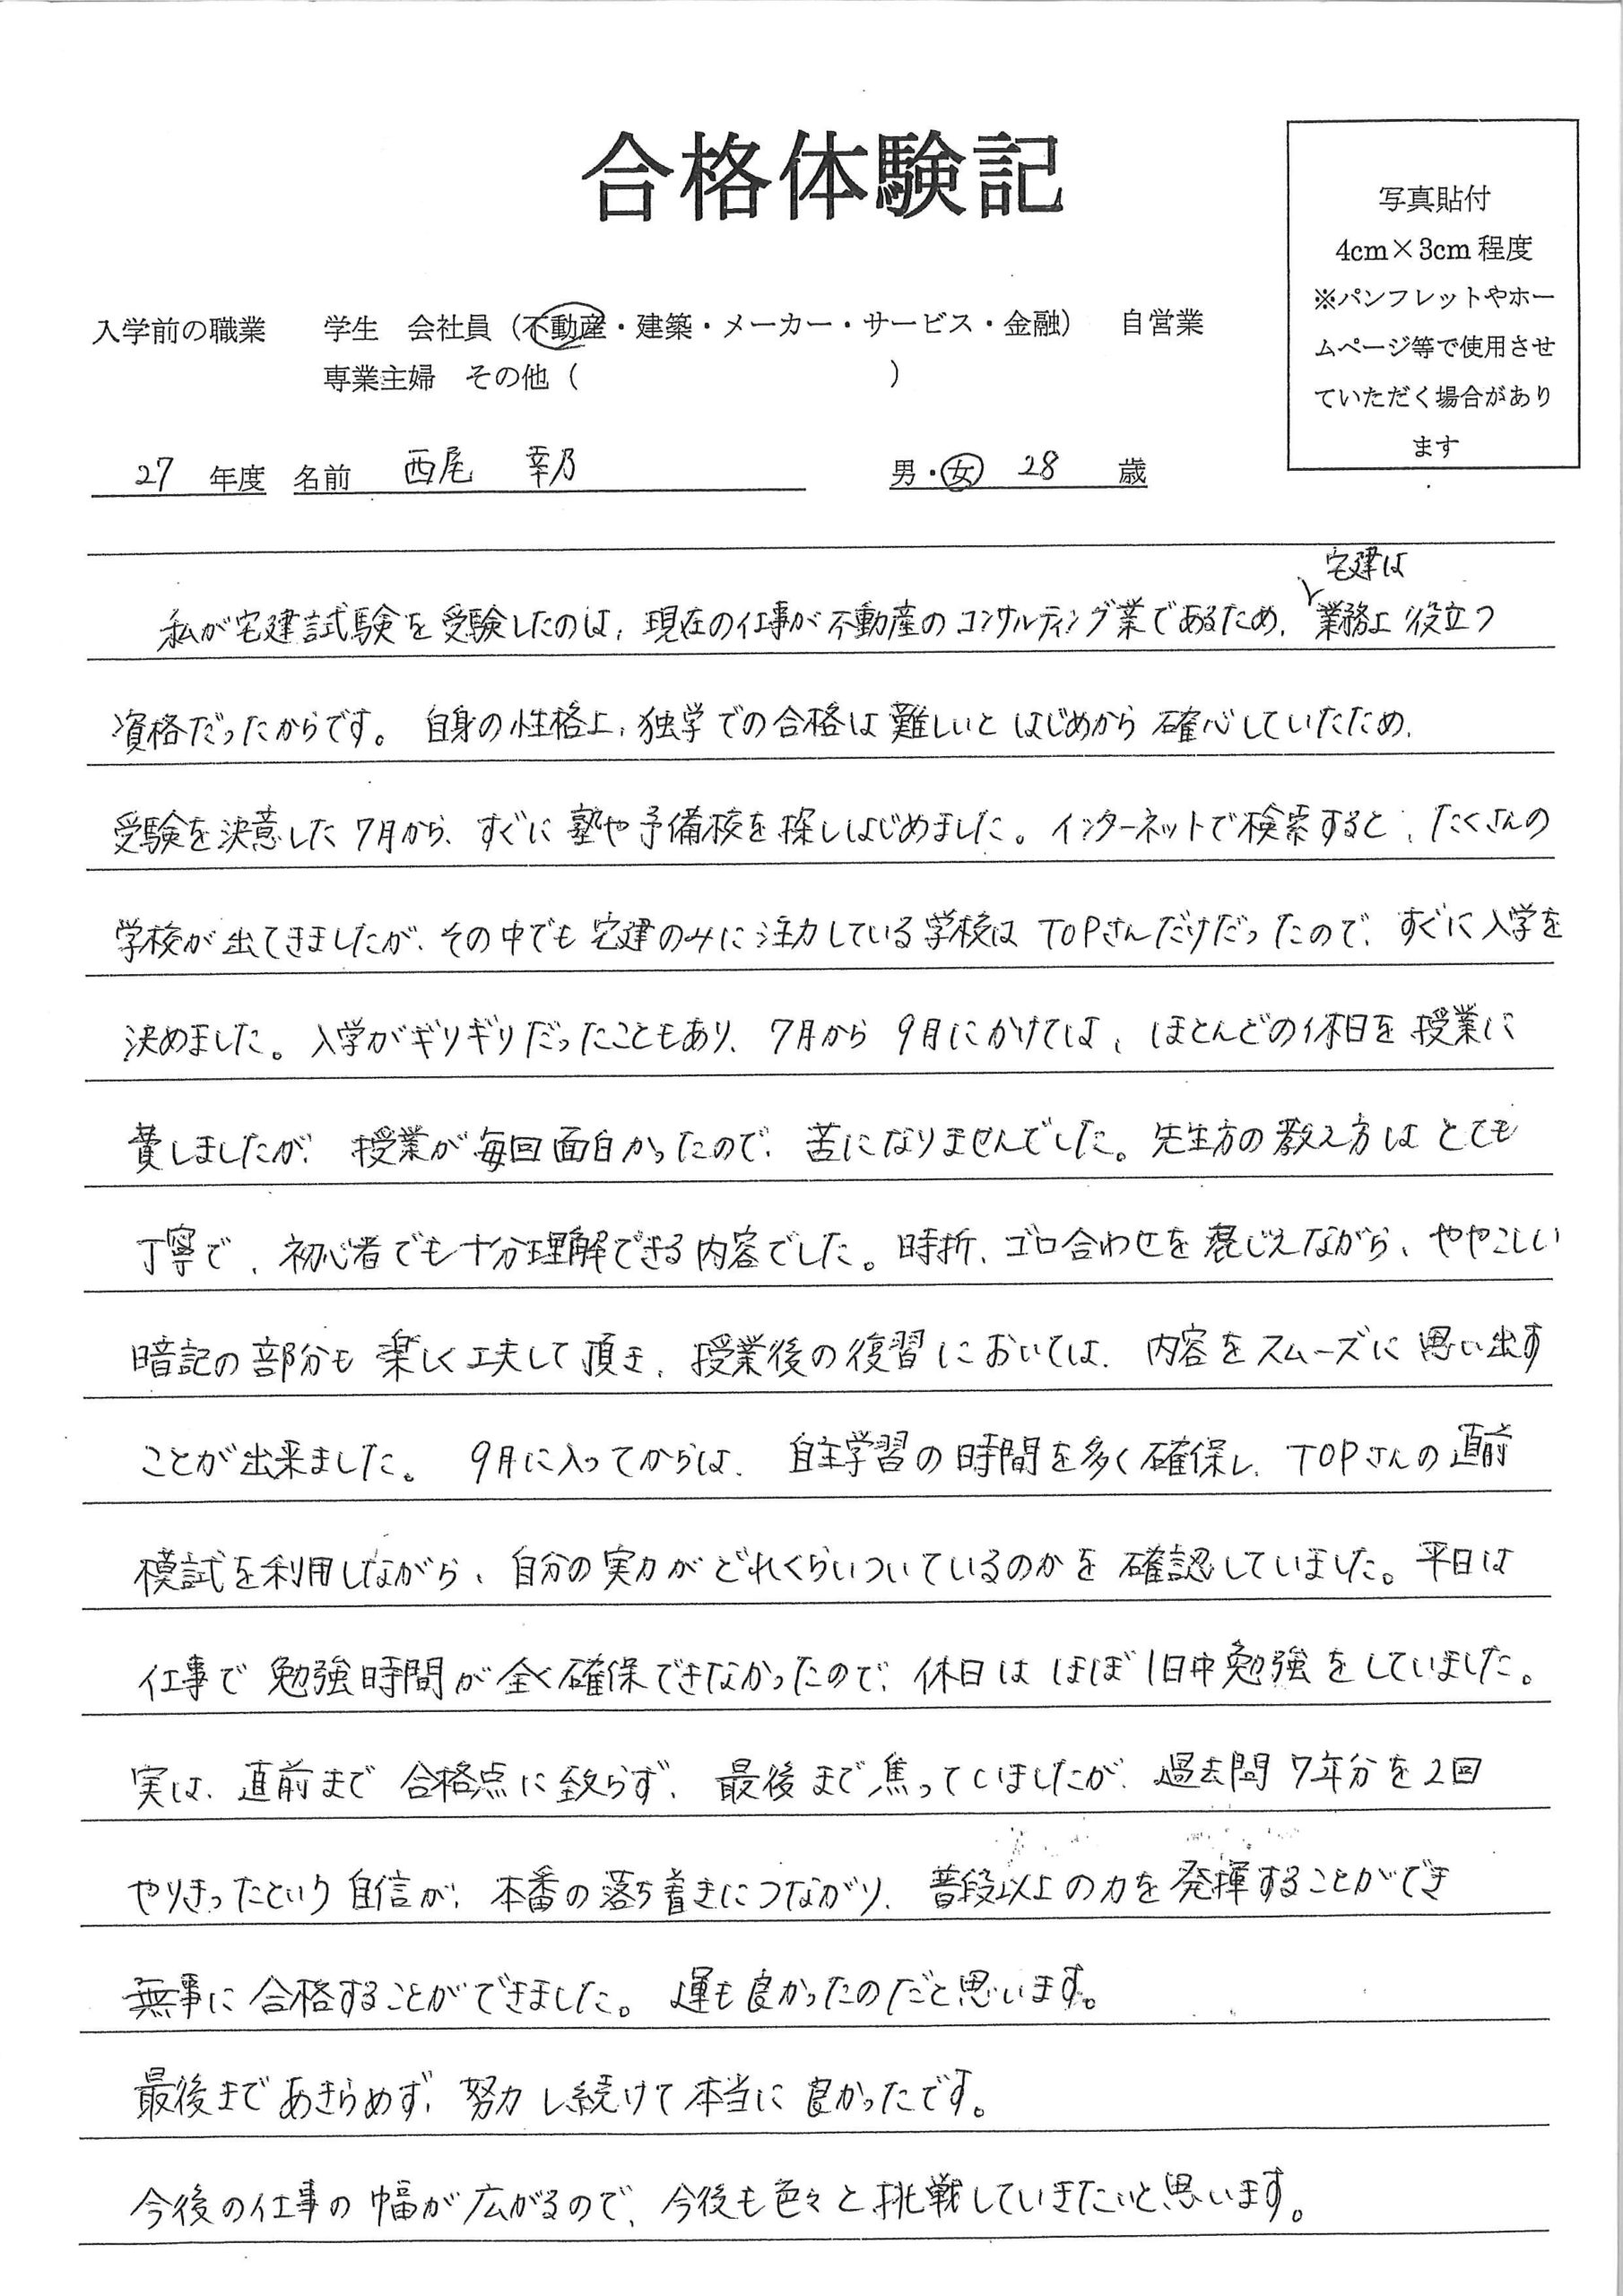 合格体験記
写真貼付
4cm×3cm 程度
※パンフレットやホー
ムページ等で使用させ
ていただく場合があり
ます
入学前の職業 学生 会社員（不動産・建築・メーカー・サービス・金融） 自営業
専業主婦 その他（ ）
27 年度 名前 西尾 幸乃 男・女 28 歳
宅建は
私が宅建試験を受験したのは、現在の仕事が不動産のコンサルティング業であるため、業務上役立つ
資格だったからです。自身の性格上、独学での合格は難しいとはじめから確心していたため、
受験を決意した7月から、すぐに塾や予備校を探しはじめました。インターネットで検索すると、たくさんの
学校が出てきましたが、その中でも宅建のみに注力している学校はTOPさんだけだったので、すぐに入学を
決めました。入学がギリギリだったこともあり、7月から9月にかけては、ほとんどの休日を授業に
費しましたが、授業が毎回面白かったので、苦になりませんでした。先生方の教え方はとても
丁寧で、初心者でも十分理解できる内容でした。時折、ゴロ合わせを混じえながら、ややこしい
暗記の部分も楽しく工夫して頂き、授業後の復習においては、内容をスムーズに思い出す
ことが出来ました。9月に入ってからは、自主学習の時間を多く確保し、TOPさんの直前
模試を利用しながら、自分の実力がどれくらいついているのかを確認していました。平日は
仕事で勉強時間が全く確保できなかったので、休日はほぼ1日中勉強をしていました。
実は、直前まで合格点に致らず、最後まで焦ってしましたが、過去問7年分を2回
やりきったという自信が、本番の落ち着きにつながり、普段以上の力を発揮することができ
無事に合格することができました。運も良かったのだと思います。
最後まであきらめず、努力し続けて本当に良かったです。
今後の仕事の幅が広がるので、今後も色々と挑戦していきたいと思います。